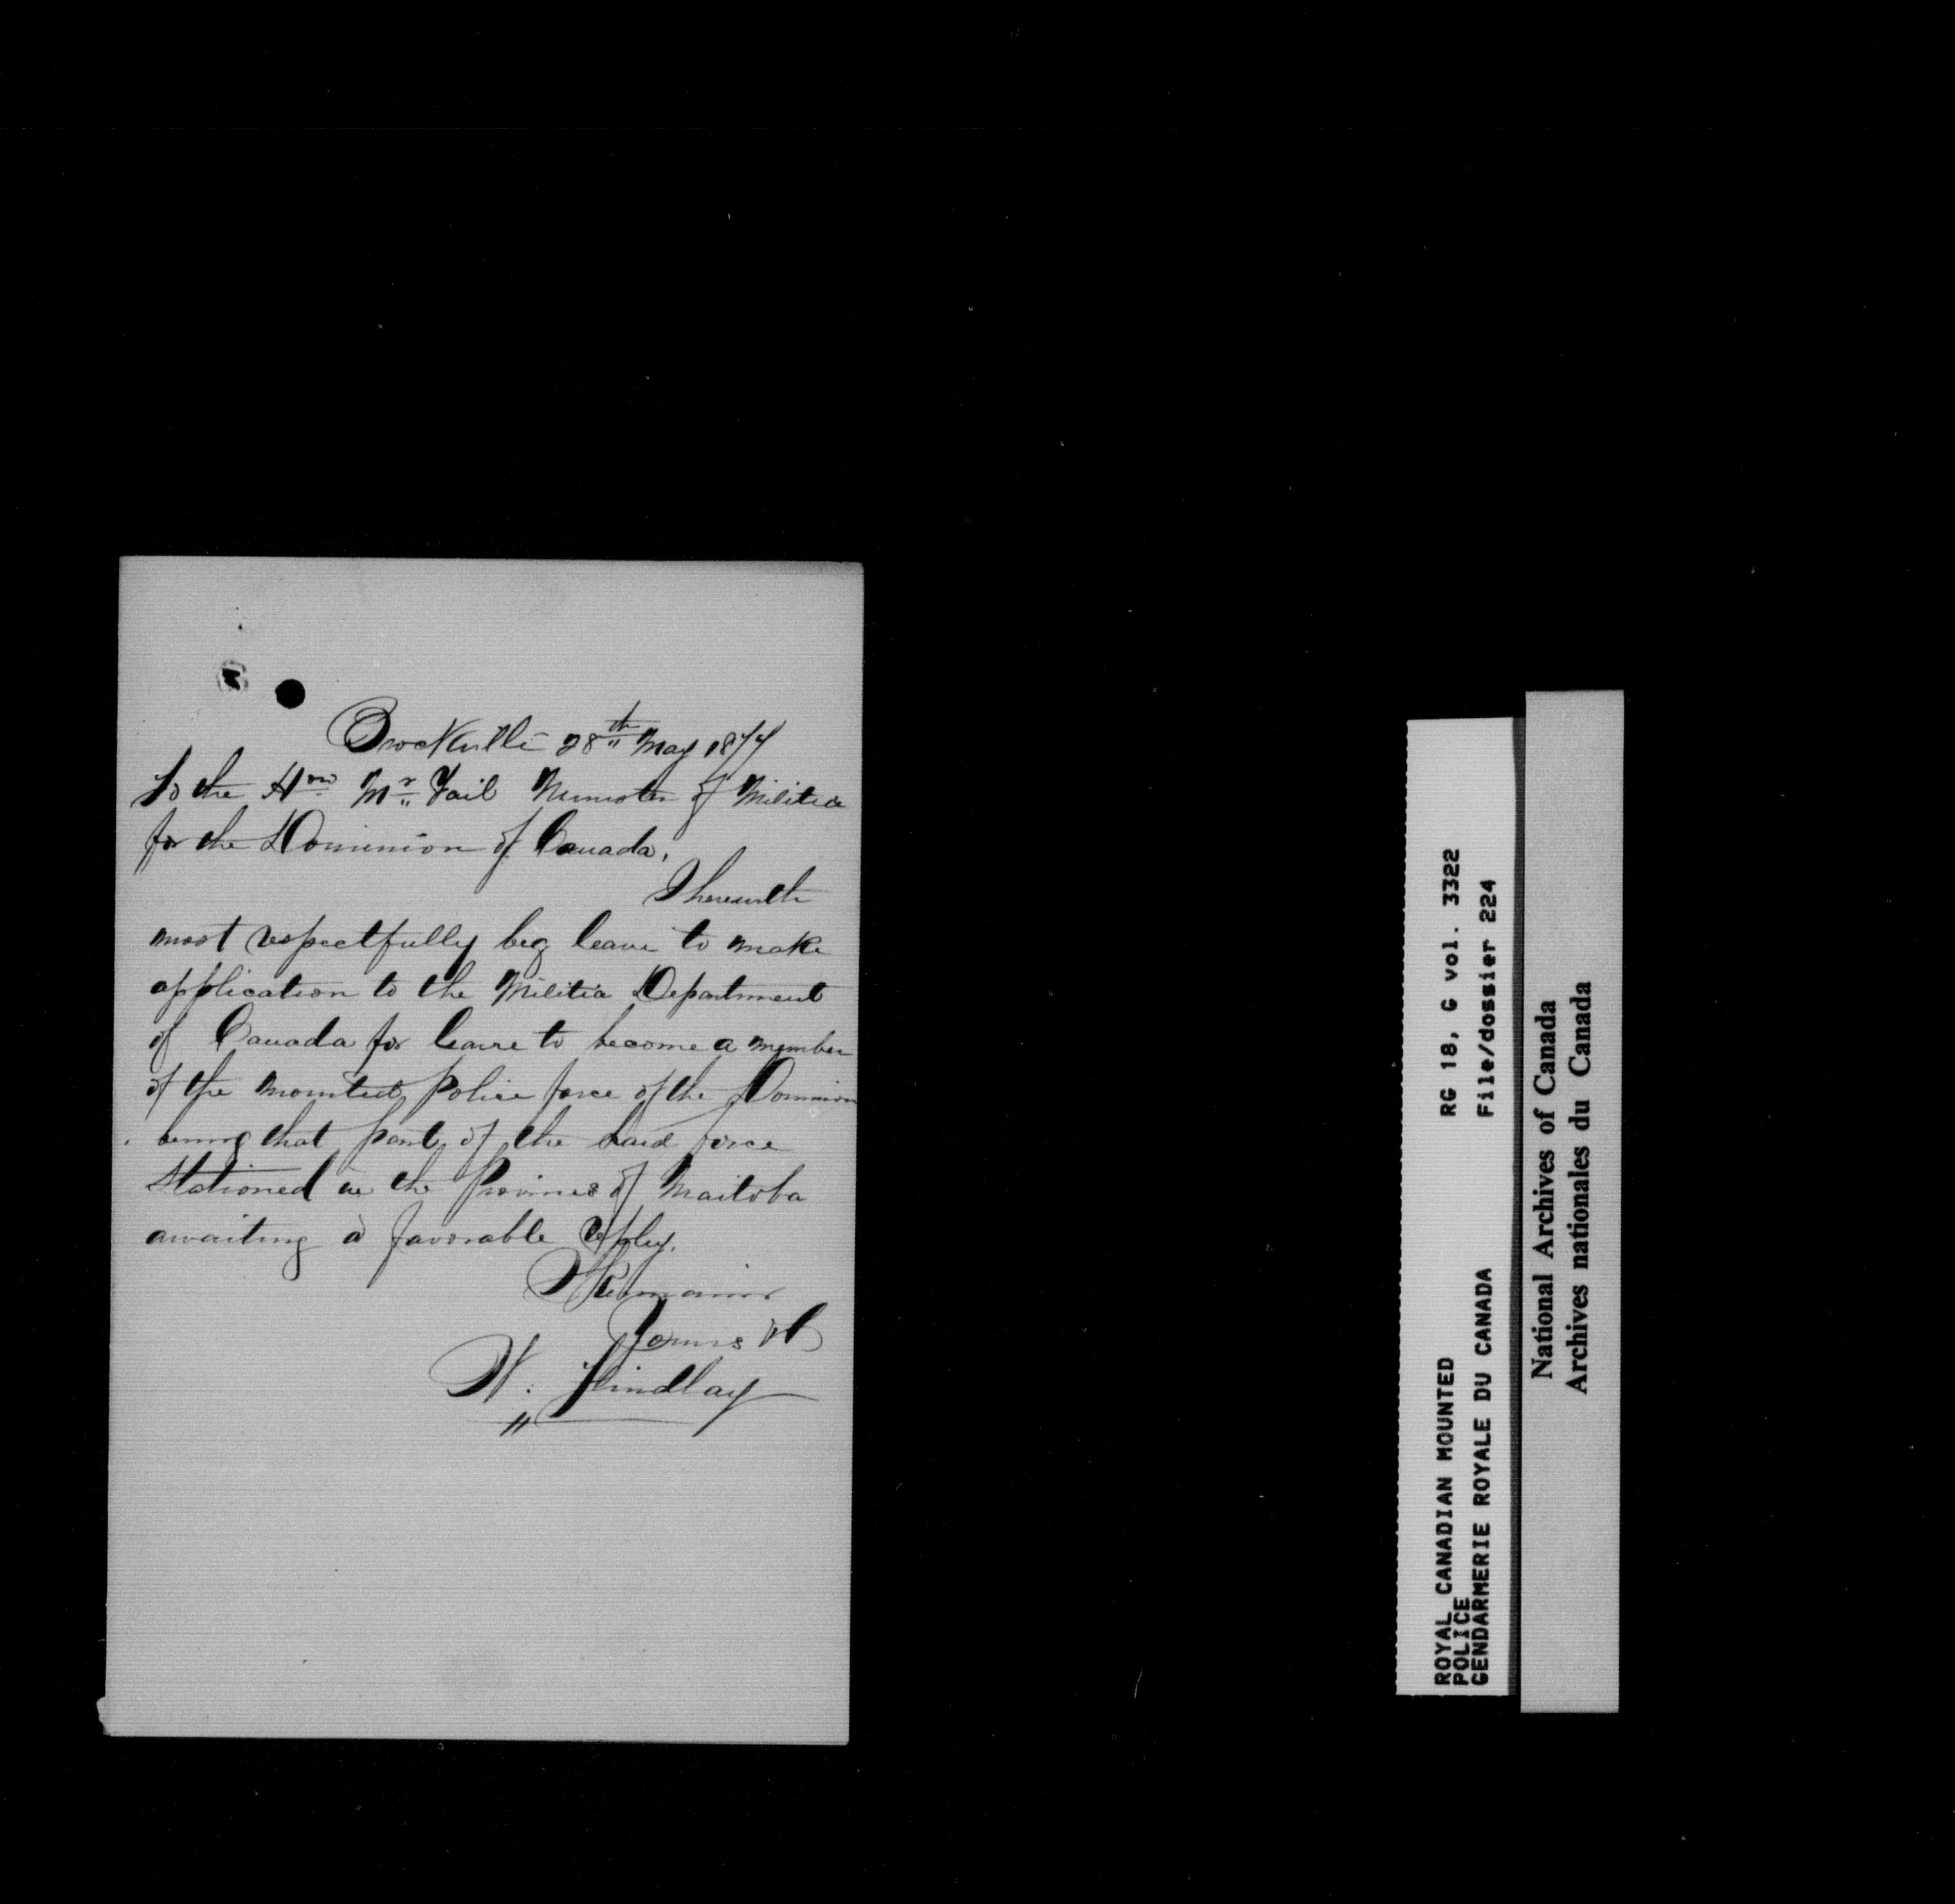 Brockville 28th May 1874
To the Hon Mr Vail Minister of Militia
for the Dominion of Canada,
I herewith
most respectfully beg leave to make
application to the Militia Department
of Canada for leave to become a member
of the mounted Police force of the Dominion
being that part of the said force
Stationed in the Province of Maitoba
awaiting a favorable reply.
I Remain
Yours
W. Findlay
ROYAL CANADIAN MOUNTED
POLICE
GENDARMERIE ROYALE DU CANADA
RG 18, G vol. 3322
File/dossier 224
National Archives of Canada
Archives nationales du Canada